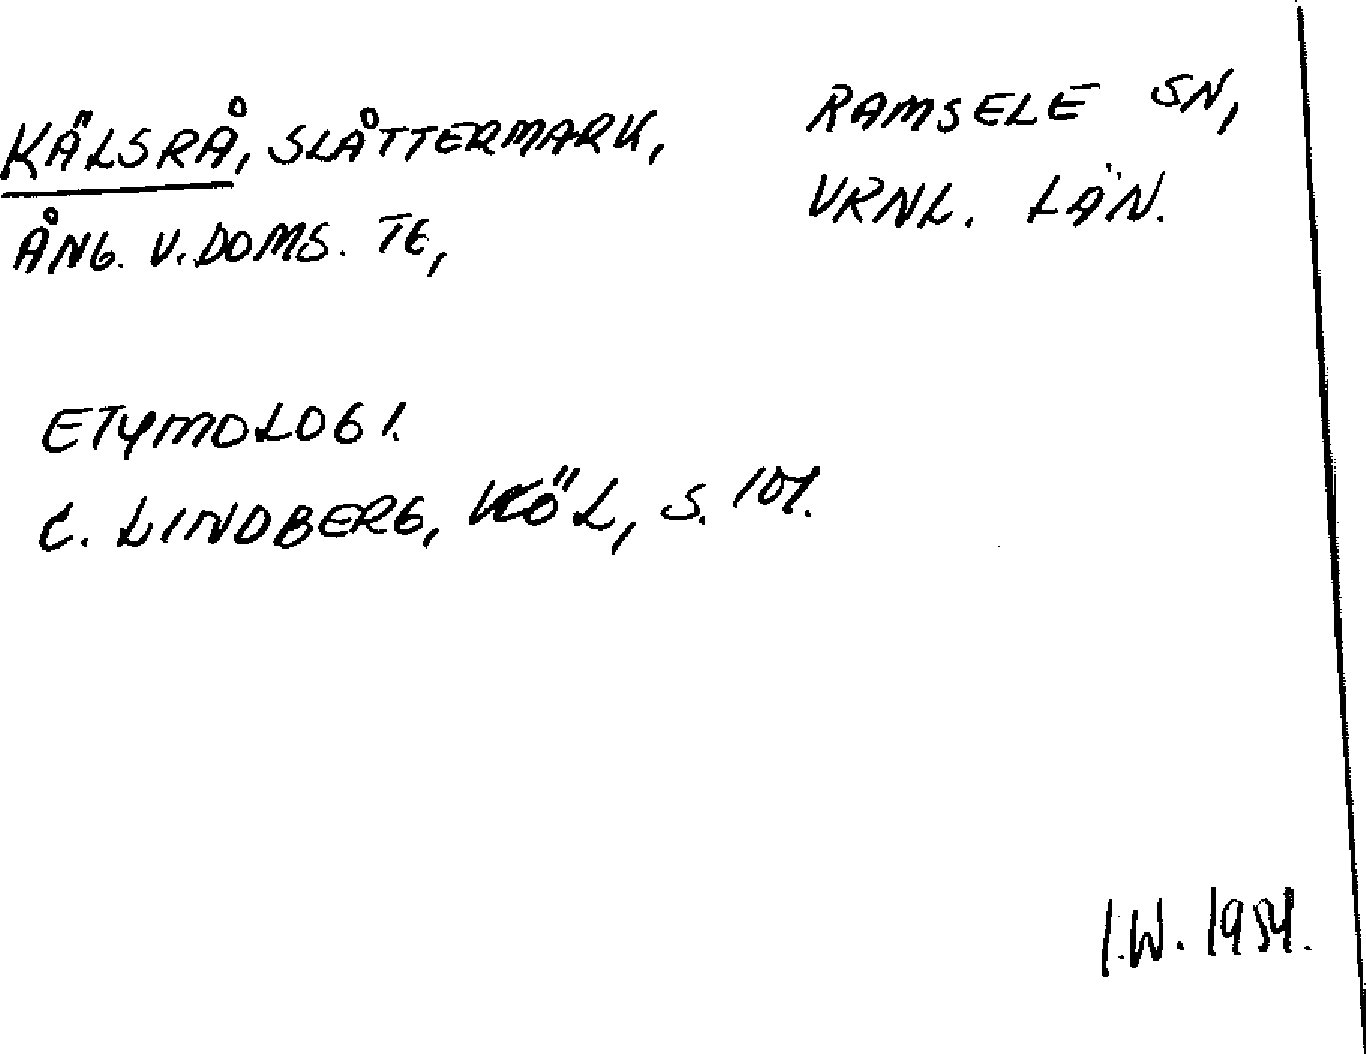 KÄLSRÅ, SLÅTTERMARK,
ÅNG. V. DOMS. TG,
RAMSELE SN,
VRNL. LÄN.
ETYMOLOGI.
C. LINDBERG, KÖL, S. 107.
I.W. 1954.